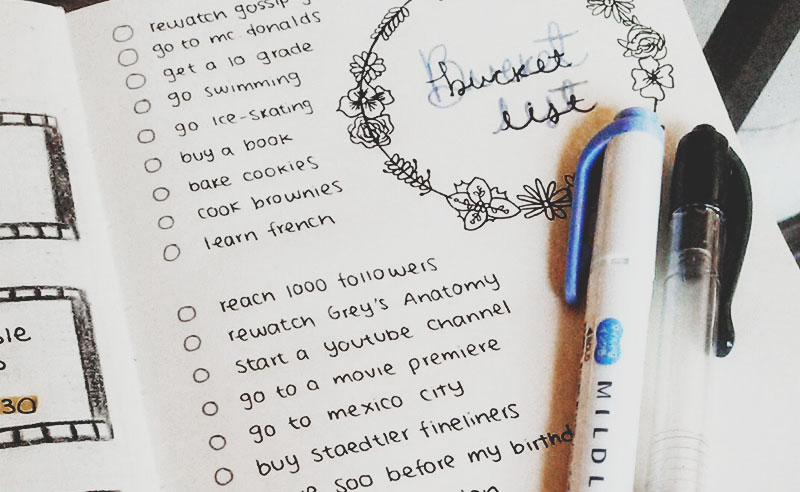 rewatch gossip
go to mc donalds
get a 10 grade
go swimming
go ice-skating
buy a book
bake cookies
cook brownies
learn french
reach 1000 followers
rewatch Grey's Anatomy
start a youtube channel
go to a movie premiere
go to mexico city
buy staedtler fineliners
500 before my birthd
bucket
list
30
MILDL